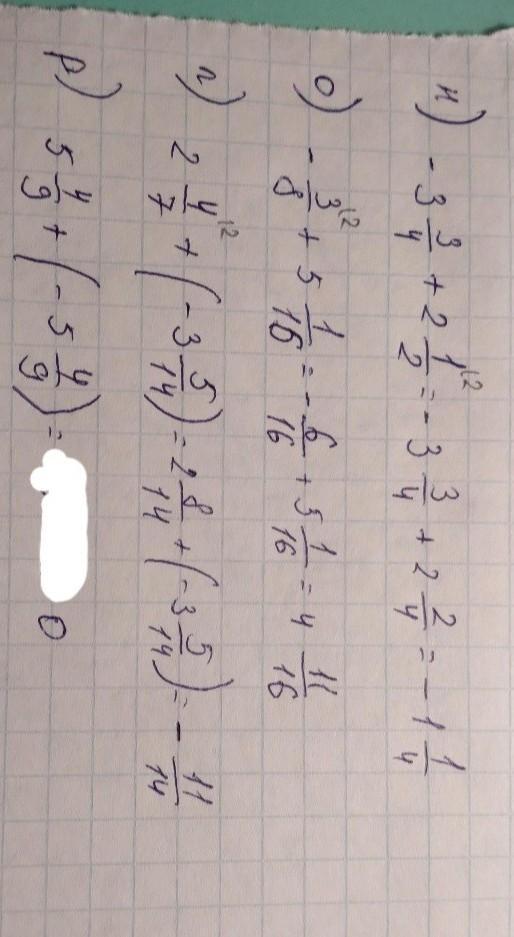 н) - 3 3/4 + 2 1/2 |2 = - 3 3/4 + 2 2/4 = - 1 1/4
о) - 3/8 |2 + 5 1/16 = - 6/16 + 5 1/16 = 4 11/16
п) 2 4/7 |2 + (- 3 5/14) = 2 8/14 + (- 3 5/14) = - 11/14
р) 5 4/9 + (- 5 4/9) = 0